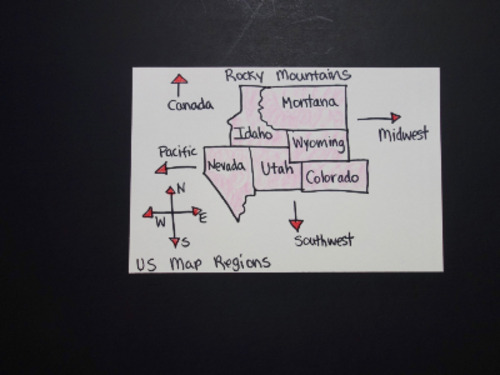 Rocky Mountains
Canada
Montana
Idaho
Wyoming
Midwest
Pacific
Nevada
Utah
Colorado
N
W
E
S
Southwest
US Map Regions